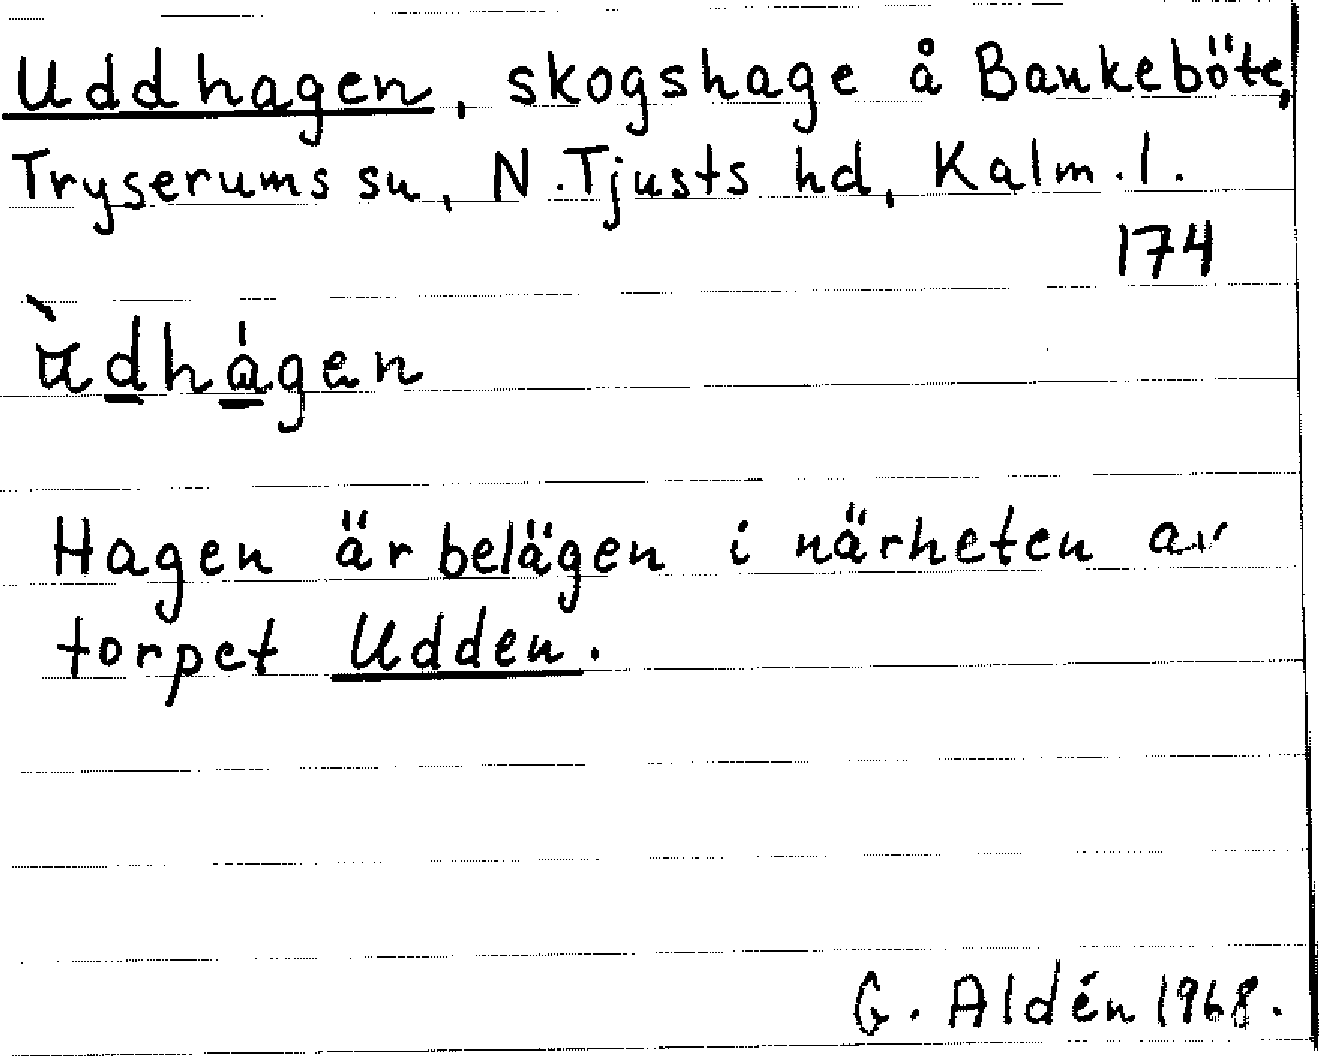 Uddhagen, skogshage å Bankeböte,
Tryserums sn, N. Tjusts hd, Kalm. l.
174
ùdhágen
Hagen är belägen i närheten av
torpet Udden.
G. Aldén 1968.